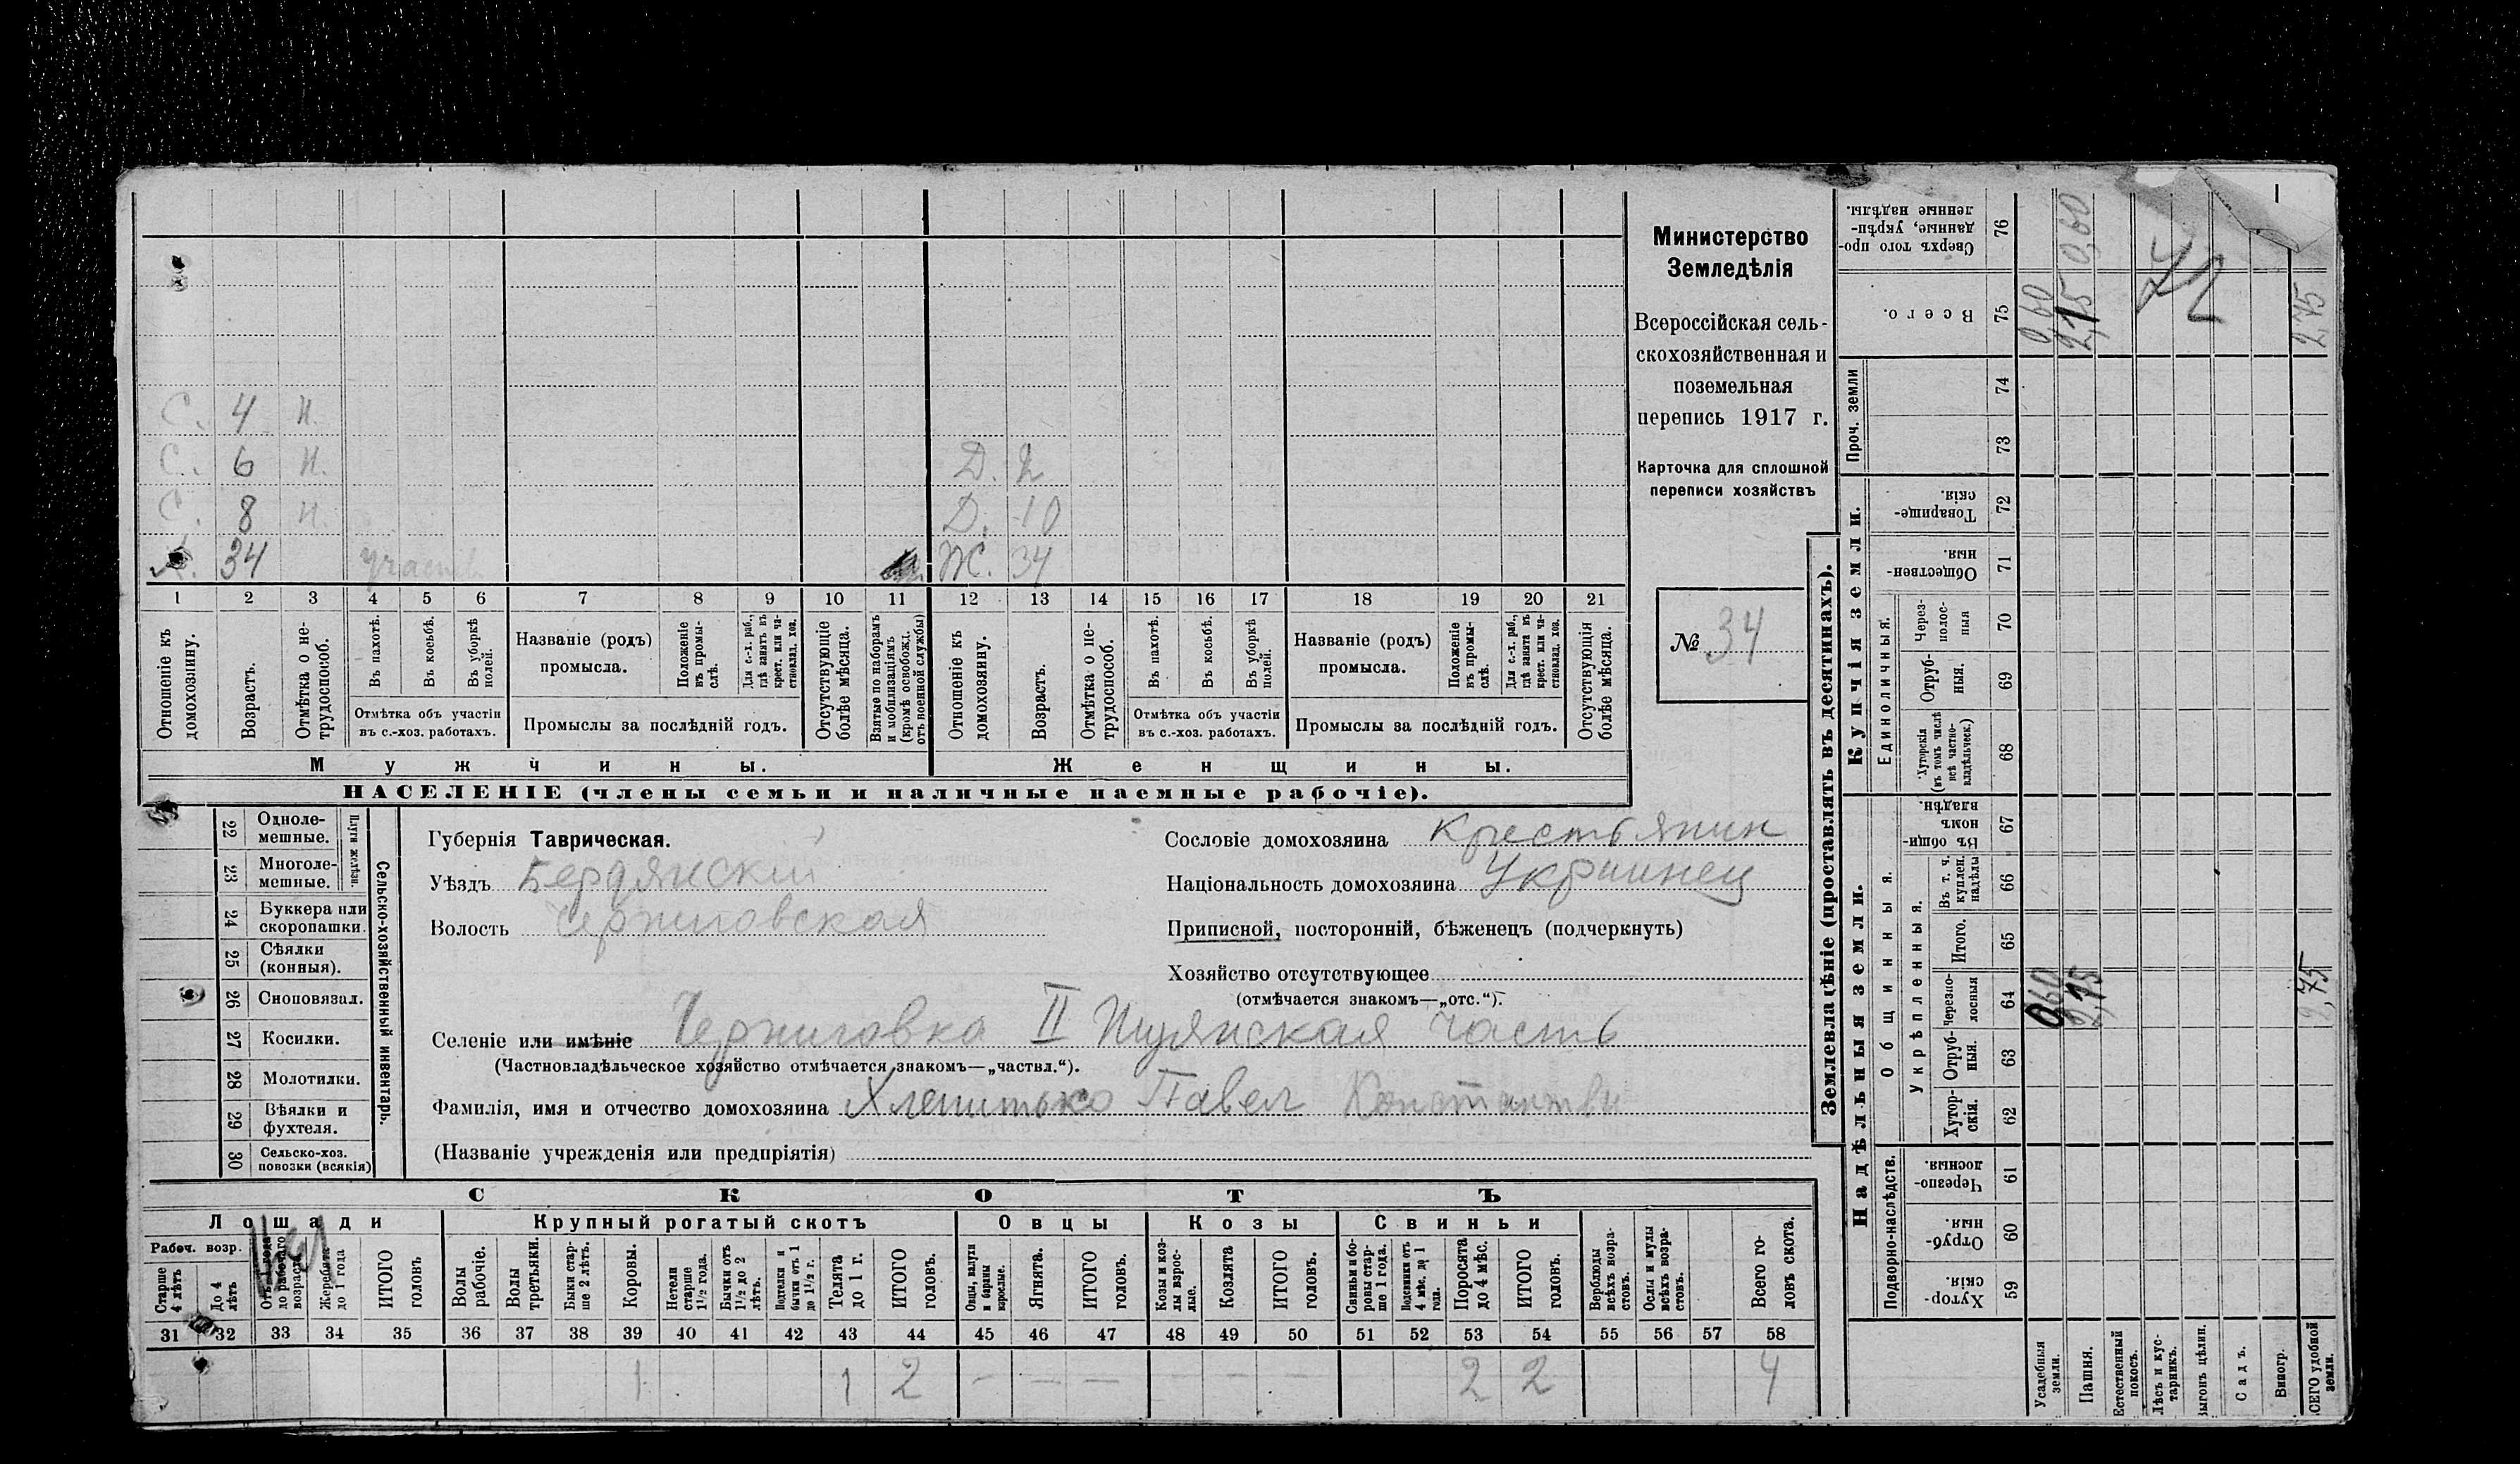 С. 4 н.
С. 6 н. Д. 2
С. 8 н. Д. 10
34 Ж. 34
1 2 3 4 5 6 7 8 9 10 11 12 13 14 15 16 17 18 19 20 21
Отношеніе къ домохозяину.
Возрастъ.
Отмѣтка о не-трудоспособ.
Въ пахотѣ.
Въ косьбѣ.
Въ уборкѣ полей.
Отмѣтка объ участіи
въ с.-хоз. работахъ.
Названіе (родъ)
промысла.
Положеніе въ промы-слѣ.
Для с.-х. раб., гдѣ занятъ въ крест. или ча-стновлад. хоз.
Промыслы за послѣдній годъ.
Отсутствующіе болѣе мѣсяца.
Взятые по наборамъ и мобилизаціямъ (кромѣ освобожд. отъ военной службы)
Отношеніе къ домохозяину.
Возрастъ.
Отмѣтка о не-трудоспособ.
Въ пахотѣ.
Въ косьбѣ.
Въ уборкѣ полей.
Отмѣтка объ участіи
въ с.-хоз. работахъ.
Названіе (родъ)
промысла.
Положеніе въ промы-слѣ.
Для с.-х. раб., гдѣ занята въ крест. или ча-стновлад. хоз.
Промыслы за послѣдній годъ.
Отсутствующія болѣе мѣсяца.
Мужчины. Женщины.
НАСЕЛЕНІЕ (члены семьи и наличные наемные рабочіе).
Министерство
Земледѣлія
Всероссійская сель-
скохозяйственная и
поземельная
перепись 1917 г.
Карточка для сплошной
переписи хозяйствъ
№ 34
22 Одноле-мешные.
23 Многоле-мешные.
Плуги желѣзн.
24 Буккера или скоропашки.
25 Сѣялки (конныя).
26 Сноповязал.
27 Косилки.
28 Молотилки.
29 Вѣялки и фухтеля.
30 Сельско-хоз. повозки (всякія)
Сельско-хозяйственный инвентарь.
Губернія Таврическая.
Уѣздъ Бердянский
Волость Черниговская
Сословіе домохозяина Крестьянин
Національность домохозяина Украинец
Приписной, посторонній, бѣженецъ (подчеркнуть)
Хозяйство отсутствующее
(отмѣчается знакомъ—„отс.“).
Селеніе или имѣніе Черниговка II часть
(Частновладѣльческое хозяйство отмѣчается знакомъ—„частвл.“).
Фамилія, имя и отчество домохозяина Павел
(Названіе учрежденія или предпріятія)
СКОТЪ
Лошади Крупный рогатый скотъ Овцы Козы Свиньи
Рабоч. возр.
Старше 4 лѣтъ
До 4 лѣтъ
Отъ 1 года до рабочаго возраста
Жеребята до 1 года
ИТОГО головъ
Волы рабочіе.
Волы третьяки.
Быки стар-ше 2 лѣтъ.
Коровы.
Нетели старше 1½ года.
Бычки отъ 1½ до 2 лѣтъ.
Подтелки и бычки отъ 1 до 1½ г.
Телята до 1 г.
ИТОГО головъ.
Овцы, валухи и бараны взрослые.
Ягнята.
ИТОГО головъ.
Козы и коз-лы взрос-лые.
Козлята
ИТОГО головъ.
Свиньи и бо-ровы стар-ше 1 года.
Подсвинки отъ 4 мѣс. до 1 года.
Поросята до 4 мѣс.
ИТОГО головъ.
Верблюды всѣхъ возра-стовъ.
Ослы и мулы всѣхъ возра-стовъ.
Всего го-ловъ скота.
31 32 33 34 35 36 37 38 39 40 41 42 43 44 45 46 47 48 49 50 51 52 53 54 55 56 57 58
1 1 2 — — — — — — 2 2 4
Землевладѣніе (проставлять въ десятинахъ).
Купчія земли.
Надѣльныя земли.
Сверхъ того про-данные, укрѣп-ленные надѣлы. 76
Всего. 75
Проч. земли
74
73
Товарище-скія. 72
Обществен-ныя. 71
Единоличныя.
Через-полос-ныя 70
Отруб-ныя. 69
Хуторскія (въ томъ числѣ всѣ частно-владѣльческ.) 68
Общинныя.
Въ общин-номъ владѣн. 67
Укрѣпленныя.
Въ т. ч. куплен. надѣлы 66
Итого. 65
Черезпо-лосныя 64
Отруб-ныя. 63
Хутор-скія. 62
Подворно-наслѣдств.
Черезпо-лосныя. 61
Отруб-ныя. 60
Хутор-скія 59
Усадебныя земли. 0,60 0,60
Пашня. 2,15 2,15 0,60
Естественный покосъ.
Лѣсъ и кус-тарникъ.
Выгонъ цѣлин.
Садъ.
Виногр.
ВСЕГО удобной земли. 2,75 2,75